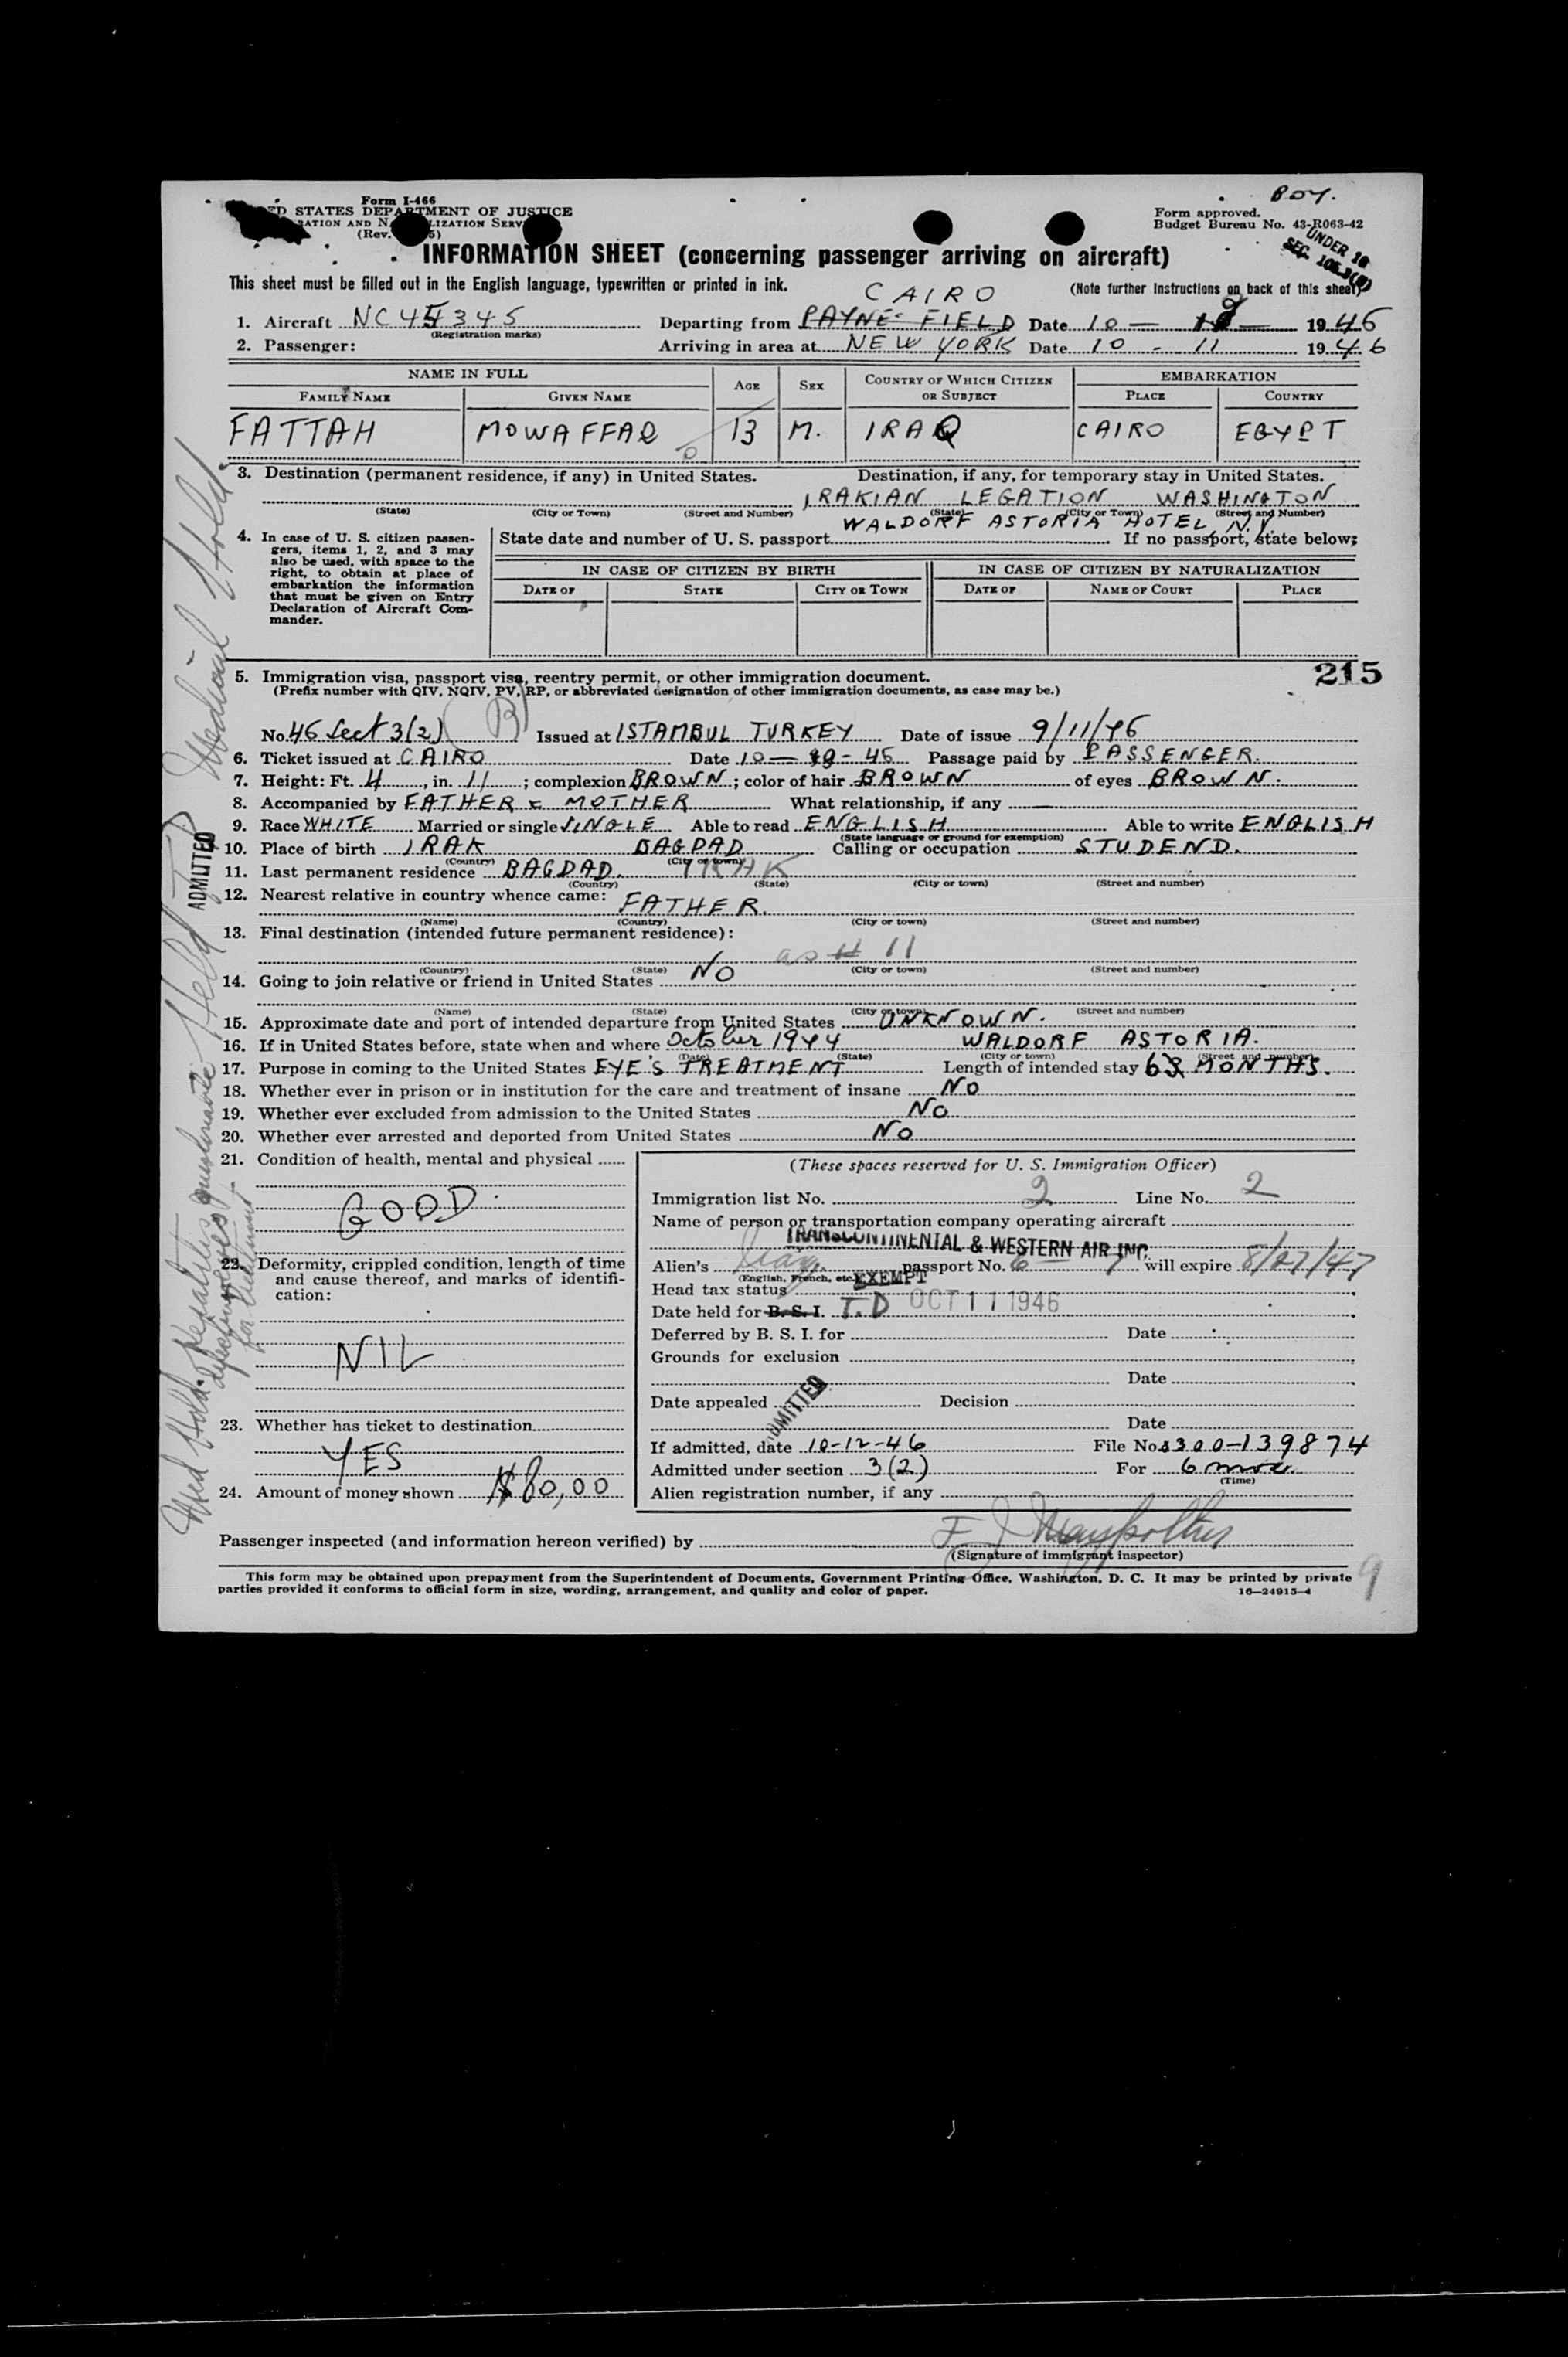 BOY.
Form I-466
STATES DEPARTMENT OF JUSTICE
(Rev.
Form approved.
Budget Bureau No. 43-R063-42
UNDER 16
SEC.
INFORMATION SHEET (concerning passenger arriving on aircraft)
This sheet must be filled out in the English language, typewritten or printed in ink.
(Note further instructions on back of this sheet)
CAIRO
1. Aircraft NC45345 Departing from PAYNE FIELD Date 10 — 1946
(Registration marks)
2. Passenger: Arriving in area at NEW YORK Date 10 - 11 1946
NAME IN FULL AGE SEX COUNTRY OF WHICH CITIZEN OR SUBJECT EMBARKATION
FAMILY NAME GIVEN NAME PLACE COUNTRY
FATTAH MOWAFFAQ 13 M. IRAQ CAIRO EGYPT
3. Destination (permanent residence, if any) in United States. Destination, if any, for temporary stay in United States.
IRAKIAN LEGATION WASHINGTON
(State) (City or Town) (Street and Number) (State) (City or Town) (Street and Number)
WALDORF ASTORIA HOTEL N.Y
4. In case of U. S. citizen passengers, items 1, 2, and 3 may also be used, with space to the right, to obtain at place of embarkation the information that must be given on Entry Declaration of Aircraft Commander.
State date and number of U. S. passport If no passport, state below:
IN CASE OF CITIZEN BY BIRTH IN CASE OF CITIZEN BY NATURALIZATION
DATE OF STATE CITY OR TOWN DATE OF NAME OF COURT PLACE
215
5. Immigration visa, passport visa, reentry permit, or other immigration document.
(Prefix number with QIV, NQIV, PV, RP, or abbreviated designation of other immigration documents, as case may be.)
No. 46 Sect 3(2) (B) Issued at ISTAMBUL TURKEY Date of issue 9/11/46
6. Ticket issued at CAIRO Date 10 — 46 Passage paid by PASSENGER.
7. Height: Ft. 4, in. 11; complexion BROWN; color of hair BROWN of eyes BROWN.
8. Accompanied by FATHER & MOTHER What relationship, if any —
9. Race WHITE Married or single SINGLE Able to read ENGLISH Able to write ENGLISH
(State language or ground for exemption)
10. Place of birth IRAK BAGDAD Calling or occupation STUDEND.
(Country) (City or town)
11. Last permanent residence BAGDAD. IRAK
(Country) (State) (City or town) (Street and number)
12. Nearest relative in country whence came: FATHER.
(Name) (Country) (City or town) (Street and number)
13. Final destination (intended future permanent residence):
as # 11
(Country) (State) (City or town) (Street and number)
14. Going to join relative or friend in United States NO
(Name) (State) (City or town) (Street and number)
15. Approximate date and port of intended departure from United States UNKNOWN.
16. If in United States before, state when and where October 1944 WALDORF ASTORIA.
(Date) (State) (City or town) (Street and number)
17. Purpose in coming to the United States EYE'S TREATMENT Length of intended stay 6 MONTHS.
18. Whether ever in prison or in institution for the care and treatment of insane NO
19. Whether ever excluded from admission to the United States NO
20. Whether ever arrested and deported from United States NO
21. Condition of health, mental and physical
GOOD.
22. Deformity, crippled condition, length of time and cause thereof, and marks of identification:
NIL
23. Whether has ticket to destination
YES
24. Amount of money shown $80,00
(These spaces reserved for U. S. Immigration Officer)
Immigration list No. 2 Line No. 2
Name of person or transportation company operating aircraft
TRANSCONTINENTAL & WESTERN AIR INC.
Alien's passport No. will expire 8/27/47
(English, French, etc.)
Head tax status EXEMPT
Date held for B. S. I. T.D OCT 11 1946
Deferred by B. S. I. for Date
Grounds for exclusion
Date
Date appealed Decision
ADMITTED
Date
If admitted, date 10-12-46 File No. 300-139874
Admitted under section 3(2) For 6 mos
(Time)
Alien registration number, if any
Passenger inspected (and information hereon verified) by
(Signature of immigrant inspector)
This form may be obtained upon prepayment from the Superintendent of Documents, Government Printing Office, Washington, D. C. It may be printed by private
parties provided it conforms to official form in size, wording, arrangement, and quality and color of paper. 16—24915-4
9
Medical Hold.
ADMITTED
Held
Med Hold.